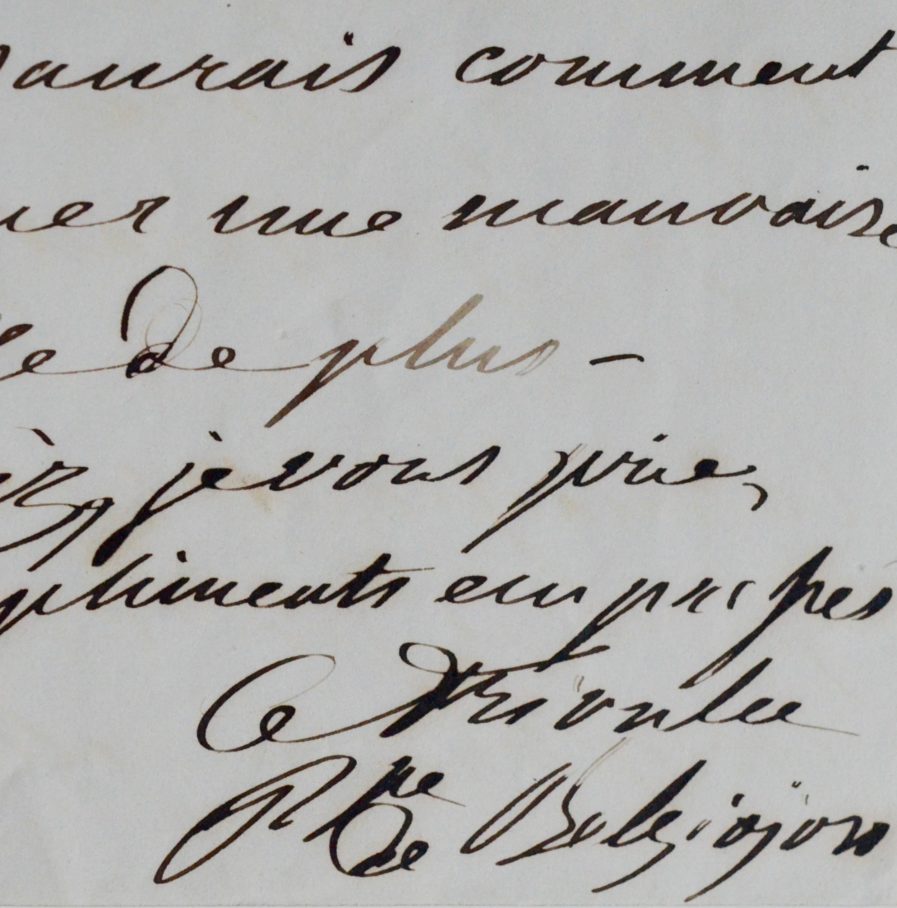 saurais comment
uer une mauvaise
le de plus —
ez, je vous prie,
pliments empressés
Ce Trivulce
Pce de Belgiojoso